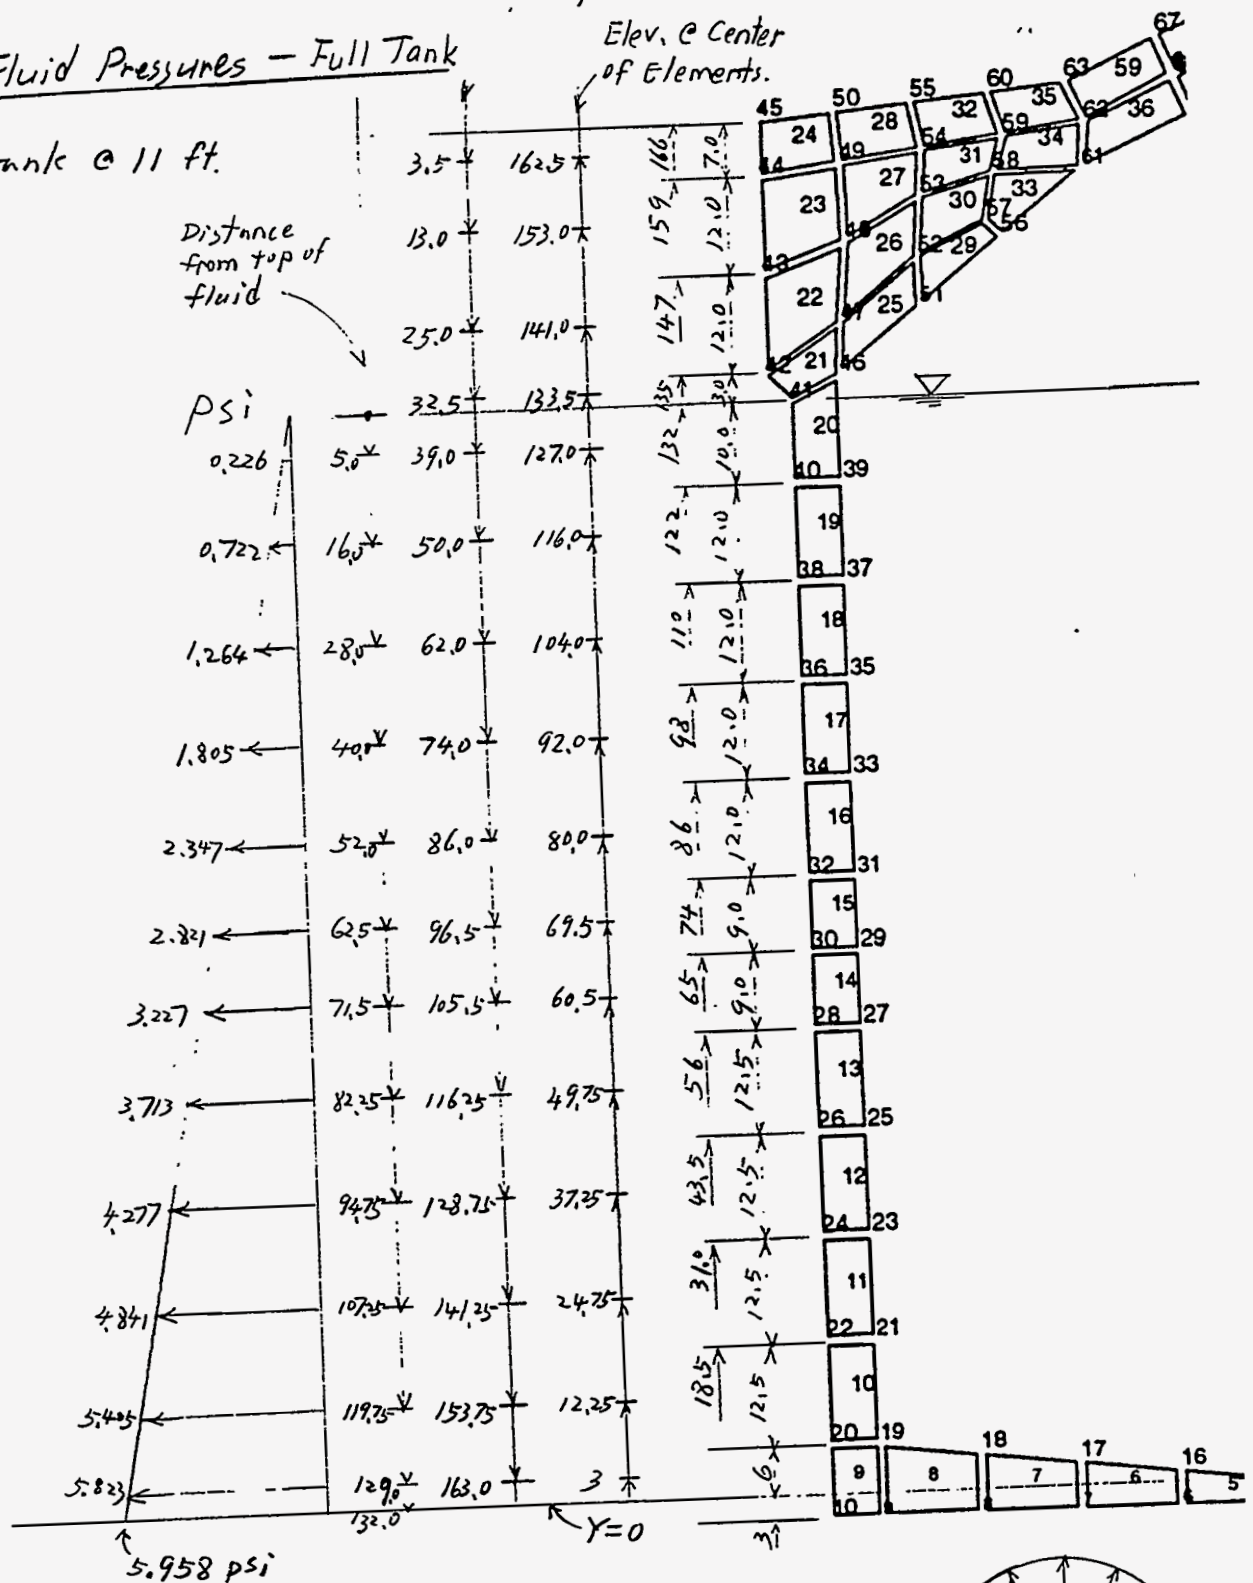 Fluid Pressures — Full Tank
Elev. @ Center
of Elements.
Tank @ 11 ft.
Distance
from top of
fluid
psi
3.5 162.5 166 7.0
13.0 153.0 159 12.0
25.0 141.0 147 12.0
32.5 133.5 135 3.0
0.226 5.0 39.0 127.0 132 10.0
0.722 16.0 50.0 116.0 122 12.0
1.264 28.0 62.0 104.0 110 12.0
1.805 40.0 74.0 92.0 98 12.0
2.347 52.0 86.0 80.0 86 12.0
2.821 62.5 96.5 69.5 74 9.0
3.227 71.5 105.5 60.5 65 9.0
3.713 82.25 116.25 49.75 56 12.5
4.277 94.75 128.75 37.25 43.5 12.5
4.841 107.25 141.25 24.75 31.0 12.5
5.405 119.75 153.75 12.25 18.5 12.5
5.823 129.0 163.0 3 6
132.0
Y=0
3
5.958 psi
67
63 59
60 35 62 36
55 32 59 34 61
45 50 28 54 31 58 33
24 49 27 53 30 57
44 23 48 26 52 29 56
43 22 47 25 51
42 21 46
41
20
40 39
19
38 37
18
36 35
17
34 33
16
32 31
15
30 29
14
28 27
13
26 25
12
24 23
11
22 21
10
20 19 18 17 16
9 8 7 6 5
10